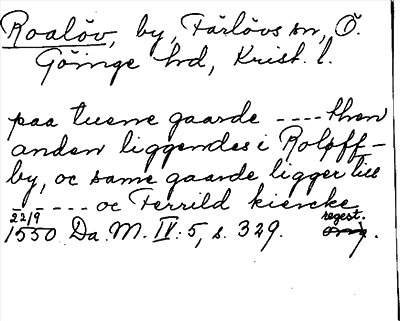 Roalöv, by, Färlövs sn, Ö.
Göinge hd, Krist. l.
paa tuene gaarde ---- then
anden liggendes i Rolöff-
by, oc same gaarde ligger till
---- oc Ferrild kiercke
22/9 regest.
1550 Da. M. IV: 5, s. 329. orig.